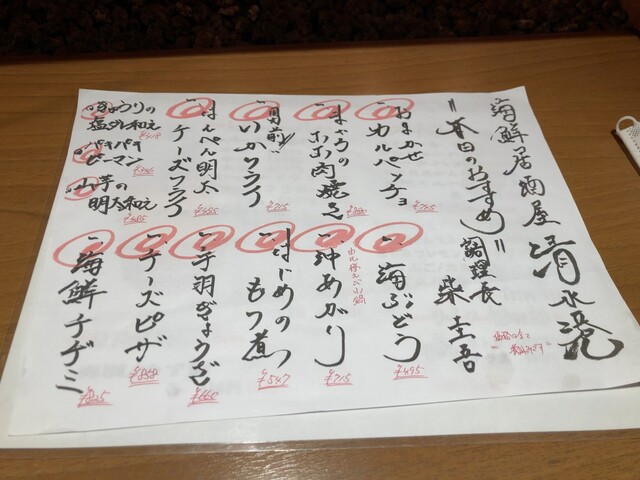 海鮮居酒屋 清水港
＝本日のおすすめ＝
調理長 柴 圭吾
一、おまかせカルパッチョ ¥765
一、まぐろのほお肉焼き
一、目の前いかフライ ¥715
一、はんぺん明太チーズフライ
きゅうりの塩ダレ和え
パキパキピーマン
山芋の明太和え
一、海ぶどう ¥495
一、沖あがり ¥715
一、はじめのもつ煮 ¥547
一、手羽ぎょうざ ¥660
一、チーズピザ ¥858
一、海鮮チヂミ